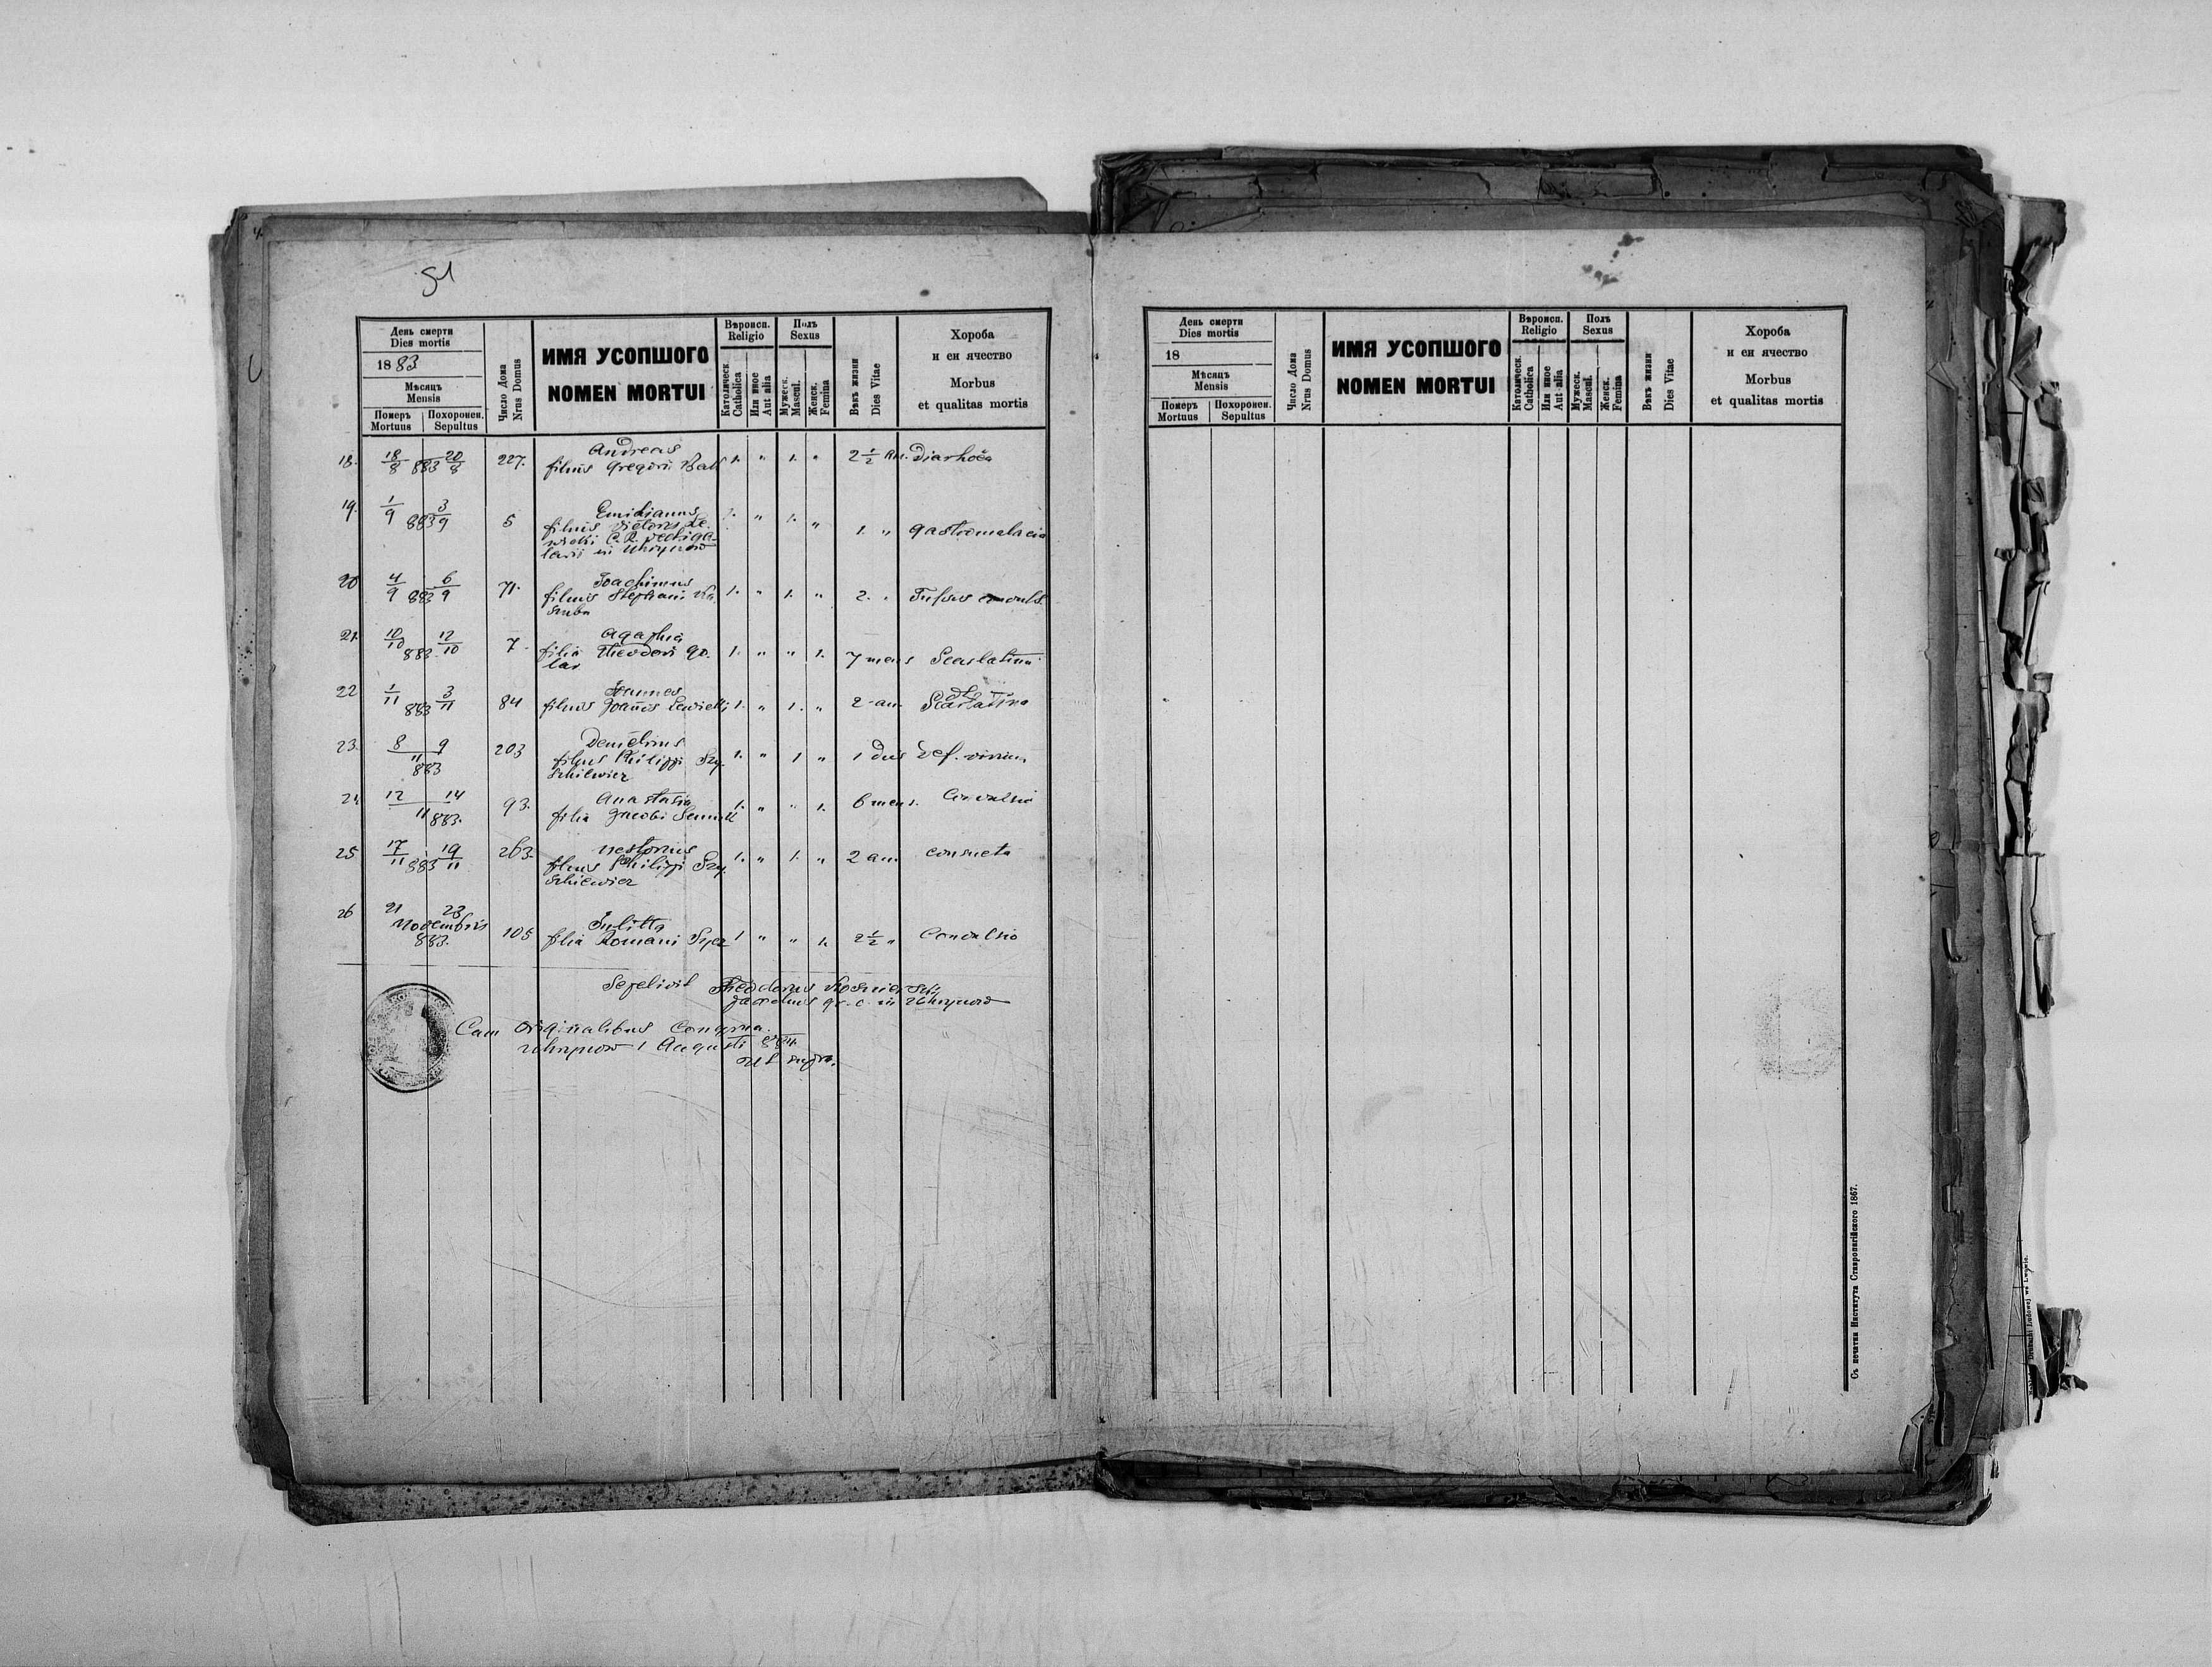 51
День смерти
Dies mortis
1883
Мѣсяцъ
Mensis
Померъ
Mortuus
Похоронен.
Sepultus
Число Дома
Nrus Domus
ИМЯ УСОПШОГО
NOMEN MORTUI
Вѣроисп.
Religio
Католическ.
Catholica
Или иное
Aut alia
Полъ
Sexus
Мужеск.
Mascul.
Женск.
Femina
Вѣкъ жизни
Dies Vitae
Хороба
и еи ячество
Morbus
et qualitas mortis
18. 18/8 883 20/8 227. Andreas
filius Gregorii 1. " 1. " 2 1/2 an. Diarhöea
19. 1/9 883 3/9 5
filius Victoris
C. R.
in Uhrynow 1. " 1. " 1. " gastromalacia
20 4/9 883 6/9 71. Joachimus
filius Stephani 1. " 1. " 2. "
21. 10/10 883 12/10 7. Agaphia
filia Theodori Go-
lar 1. " " 1. 7 mens Scarlatina
22 1/11 883 3/11 84 Joannes
filius Joannis Lewicki 1. " 1. " 2 an Scarlatina
23. 8 9
11
883 203 Demetrius
filius Philippi Szy-
1. " 1 " 1 dies Def. virium
24. 12 14
11 883. 93. Anastasia
filia Jacobi 1. " " 1. 6 mens. Convulsio
25 17/11 883 19/11 263. Nestorius
filius Philippi Szy-
1. " 1. " 2 an consueta
26 21 23
Novembris
883. 105 Julitta
filia Romani 1 " " 1. 2 1/2 " Convulsio
Sepelivit Theodorus
gr. c. in Uhrynow
Cum originalibus
Uhrynow 1 Augusti 884.
ut supra.
День смерти
Dies mortis
18
Мѣсяцъ
Mensis
Померъ
Mortuus
Похоронен.
Sepultus
Число Дома
Nrus Domus
ИМЯ УСОПШОГО
NOMEN MORTUI
Вѣроисп.
Religio
Католическ.
Catholica
Или иное
Aut alia
Полъ
Sexus
Мужеск.
Mascul.
Женск.
Femina
Вѣкъ жизни
Dies Vitae
Хороба
и еи ячество
Morbus
et qualitas mortis
Съ печатни Института Ставропигійского 1867.
Drukarni Ludowej we Lwowie.